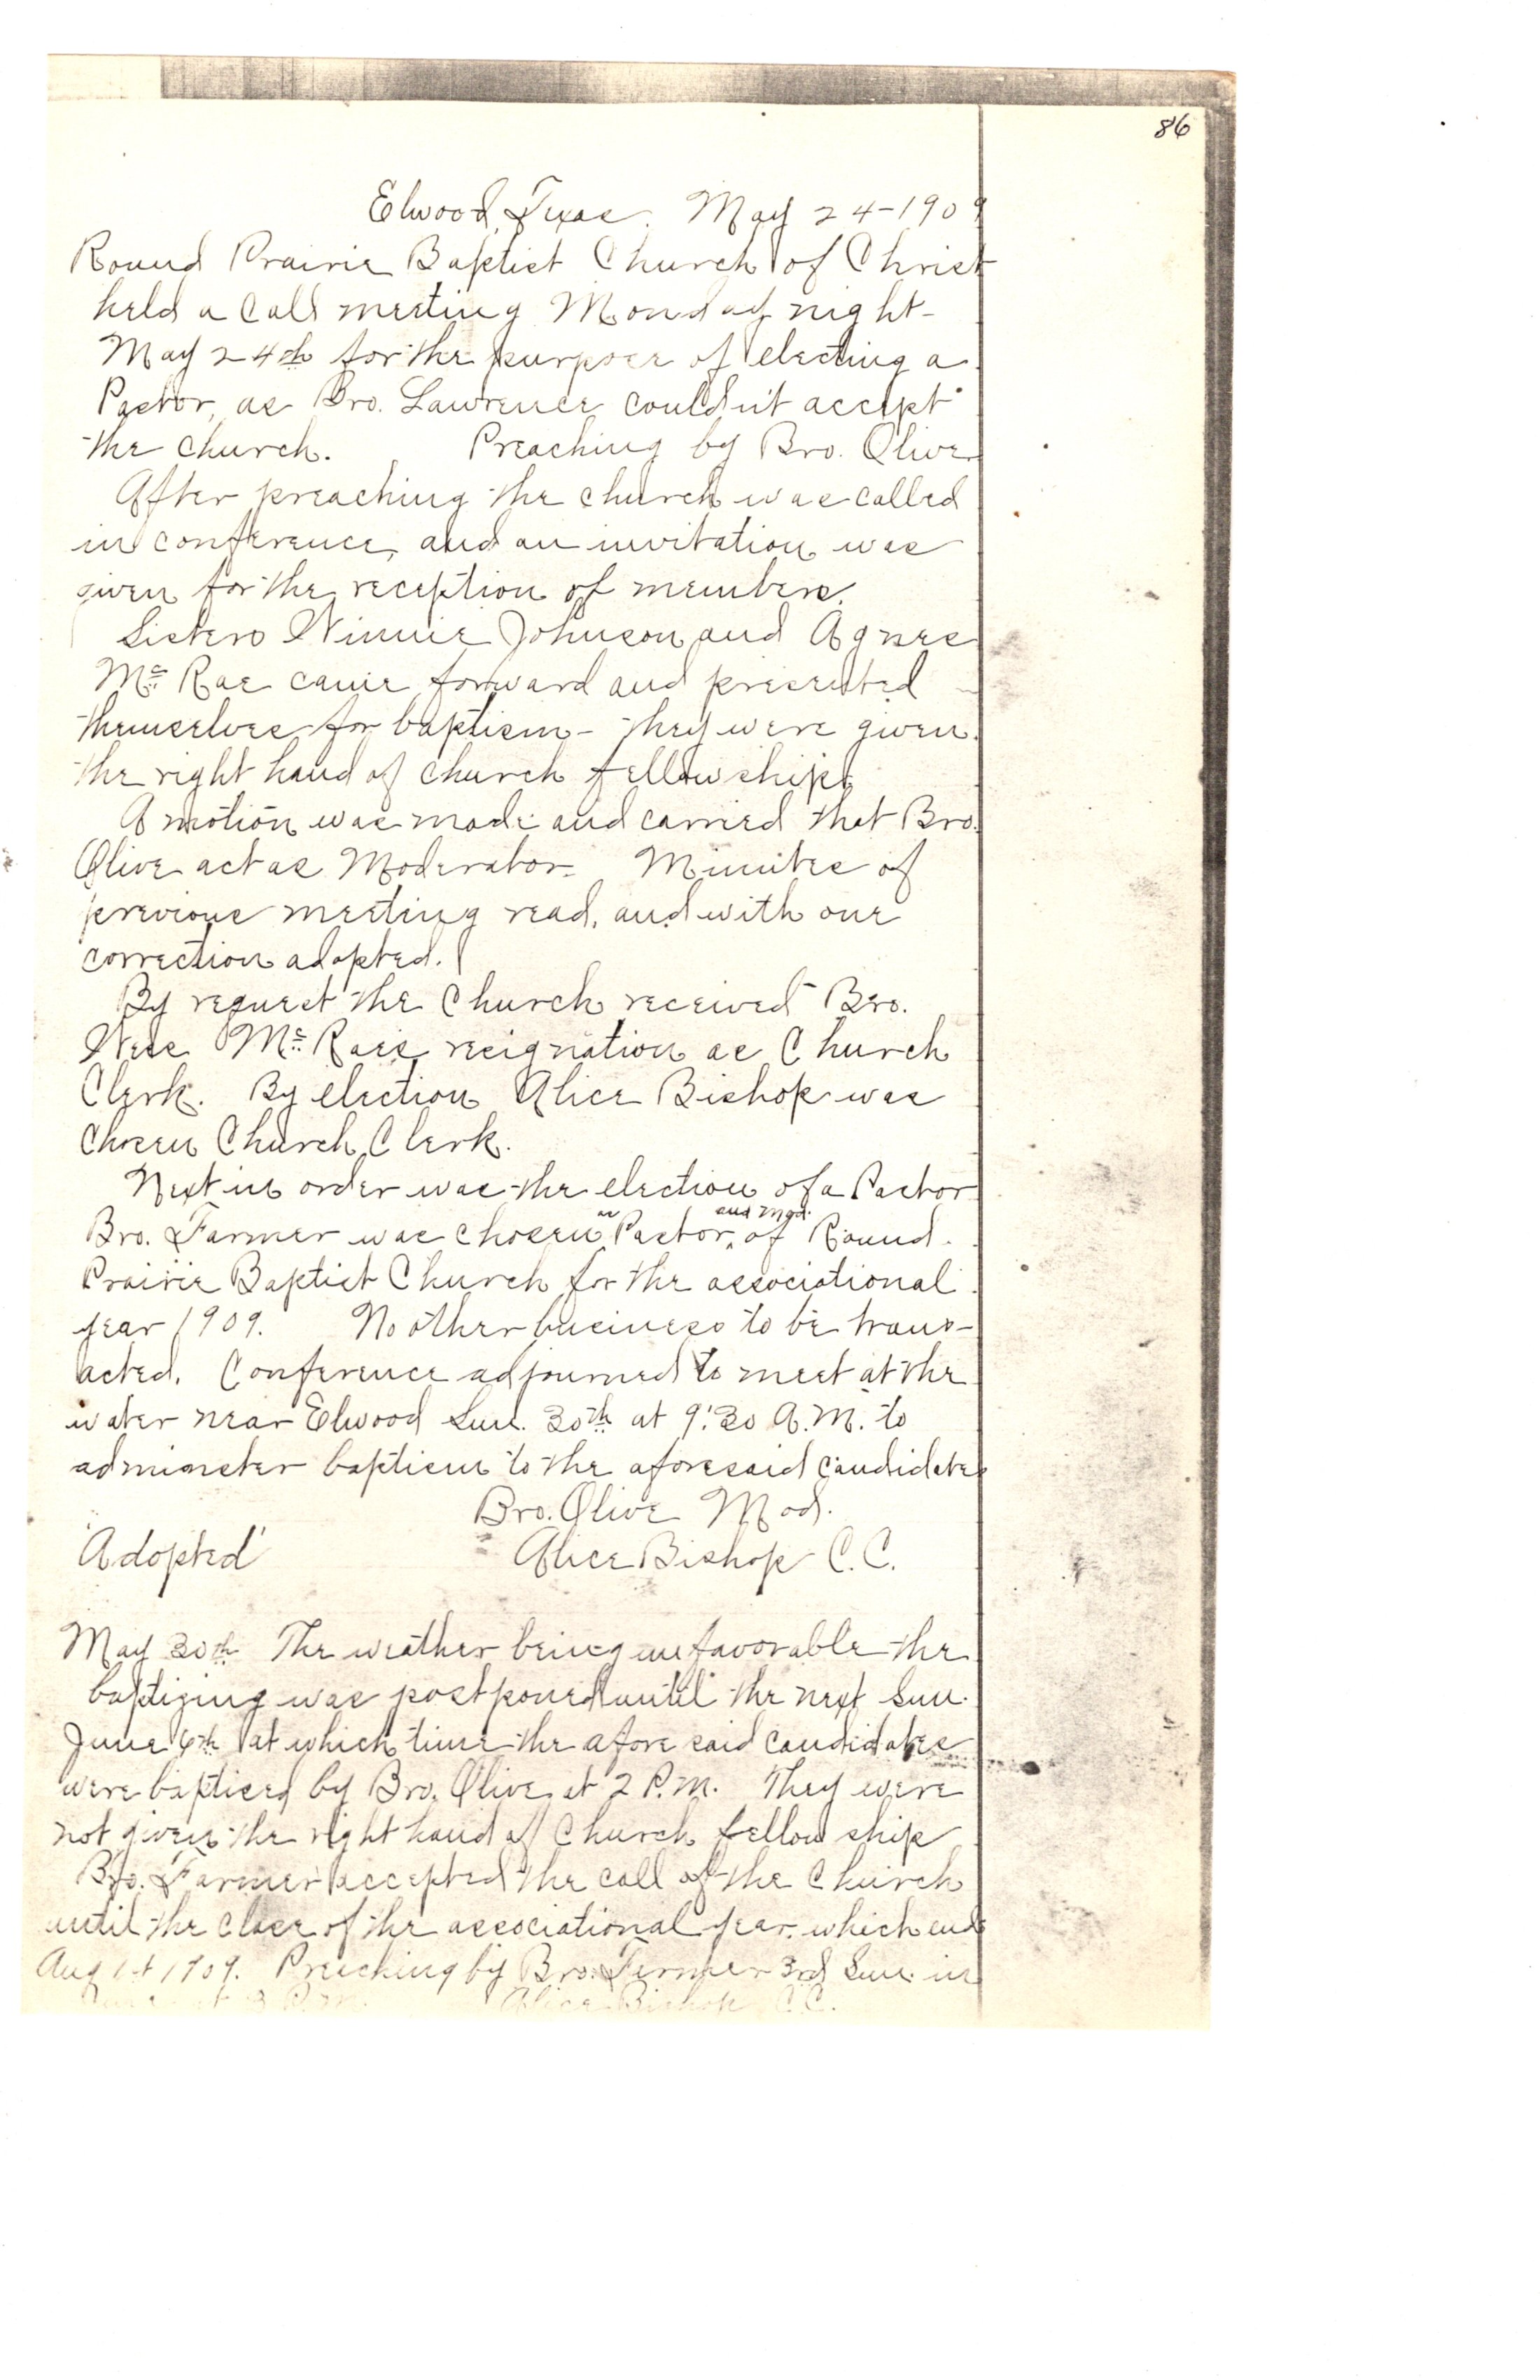 86
Elwood, Texas. May 24-1909
Round Prairie Baptist Church of Christ
held a call meeting Monday night-
May 24th for the purpose of electing a
Pastor, as Bro. Lawrence couldn't accept
the church. Preaching by Bro. Olive
After preaching the church was called
in conference, and an invitation was
given for the reception of members.
Sisters Winnie Johnson and Agnes
Mc Rae came forward and presented
themselves for baptism - they were given
the right hand of church fellowship.
A motion was made and carried that Bro.
Olive act as Moderator. Minutes of
previous meeting read, and with one
correction adopted.
By request the Church received Bro.
Wess Mc Raes resignation as Church
Clerk. By election Alice Bishop was
chosen Church Clerk.
Next in order was the election of a Pastor
Bro. Farmer was chosen as Pastor and Mod. of Round
Prairie Baptist Church for the associational
year 1909. No other business to be trans-
acted. Conference adjourned to meet at the
water near Elwood Sun. 30th at 9:30 A.M. to
adminster baptism to the aforesaid candidates
Bro. Olive Mod.
Adopted Alice Bishop C.C.
May 30th The weather being unfavorable the
baptizing was postponed until the next Sun.
June 6th at which time the afore said candidates
were baptised by Bro. Olive at 2 P.M. They were
not given the right hand of Church fellow ship
Bro. Farmer accepted the call of the Church
until the close of the associational year, which ends
Aug 1st 1909. Preaching by Bro. Farmer 3rd Sun. in
Alice Bishop C.C.